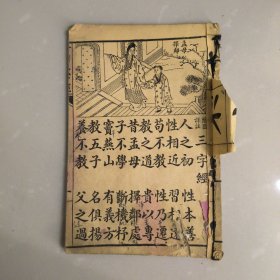 三字經
人之初 性本善
性相近 習相遠
苟不教 性乃遷
教之道 貴以專
昔孟母 擇鄰處
子不學 斷機杼
竇燕山 有義方
教五子 名俱揚
養不教 父之過